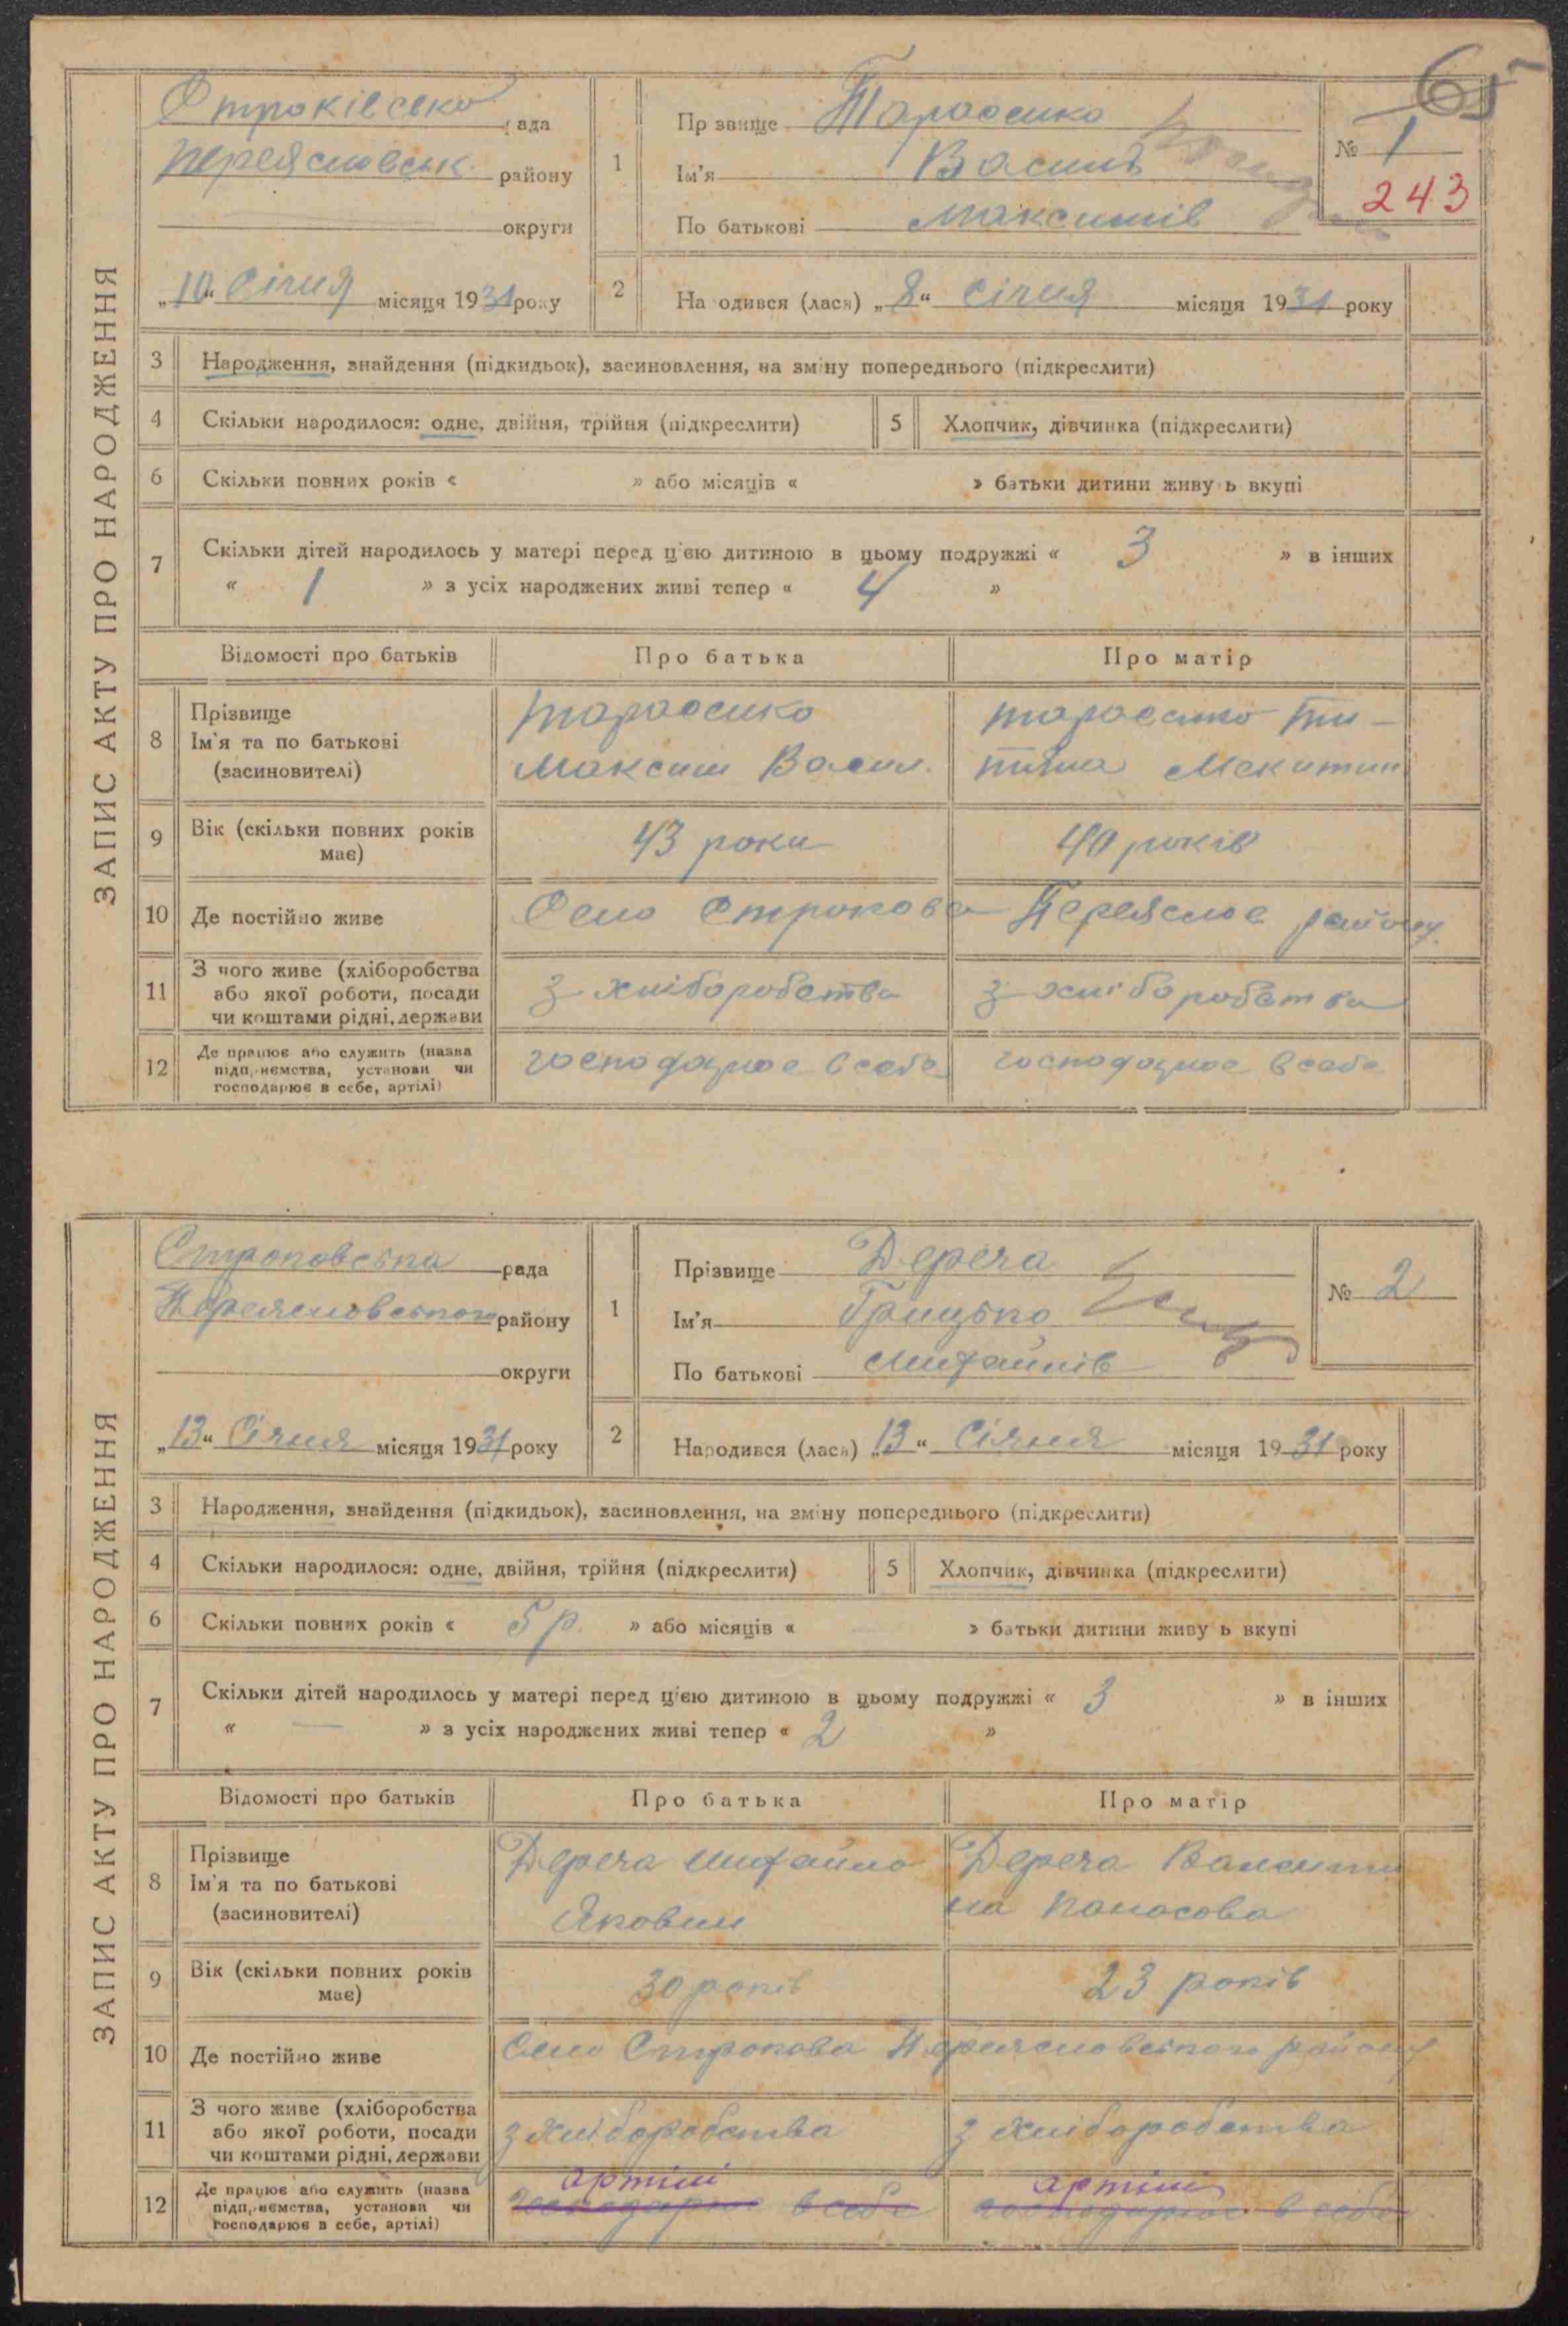 65
ЗАПИС АКТУ ПРО НАРОДЖЕННЯ
рада
Переяславськ. району
округи
„10“ Січня місяця 1931 року
1 Прізвище Тарасенко
Ім'я Василь
По батькові Максимів
№ 1
243
2 Народився (лася) „8“ Січня місяця 1931 року
3 Народження, знайдення (підкидьок), засиновлення, на зміну попереднього (підкреслити)
4 Скільки народилося: одне, двійня, трійня (підкреслити) 5 Хлопчик, дівчинка (підкреслити)
6 Скільки повних років « » або місяців « » батьки дитини живуть вкупі
7 Скільки дітей народилось у матері перед ц'єю дитиною в цьому подружжі « 3 » в інших
« 1 » з усіх народжених живі тепер « 4 »
Відомості про батьків Про батька Про матір
8 Прізвище Ім'я та по батькові (засиновителі)
Тарасенко Тарасенко
Максим Васил.
9 Вік (скільки повних років має) 43 роки 40 років
10 Де постійно живе Село Строкова Переяслав району
11 З чого живе (хліборобства або якої роботи, посади чи коштами рідні, держави
з хліборобства з хліборобства
12 Де працює або служить (назва підприємства, установи чи господарює в себе, артілі)
господарює в себе господарює в себе
ЗАПИС АКТУ ПРО НАРОДЖЕННЯ
Строковська рада
Переясловського району
округи
„13“ Січня місяця 1931 року
1 Прізвище Дереча
Ім'я Грицько
По батькові Михайлів
№ 2
2 Народився (лася) „13“ Січня місяця 1931 року
3 Народження, знайдення (підкидьок), засиновлення, на зміну попереднього (підкреслити)
4 Скільки народилося: одне, двійня, трійня (підкреслити) 5 Хлопчик, дівчинка (підкреслити)
6 Скільки повних років « 5 р. » або місяців « » батьки дитини живуть вкупі
7 Скільки дітей народилось у матері перед ц'єю дитиною в цьому подружжі « 3 » в інших
« — » з усіх народжених живі тепер « 2 »
Відомості про батьків Про батька Про матір
8 Прізвище Ім'я та по батькові (засиновителі)
Дереча Михайло Дереча Валенти
Якович на Панасова
9 Вік (скільки повних років має) 30 років 23 років
10 Де постійно живе Село Строкова Переясловського району
11 З чого живе (хліборобства або якої роботи, посади чи коштами рідні, держави
з хліборобства з хліборобства
12 Де працює або служить (назва підприємства, установи чи господарює в себе, артілі)
артілі артілі
господарює в себе господарює в себе